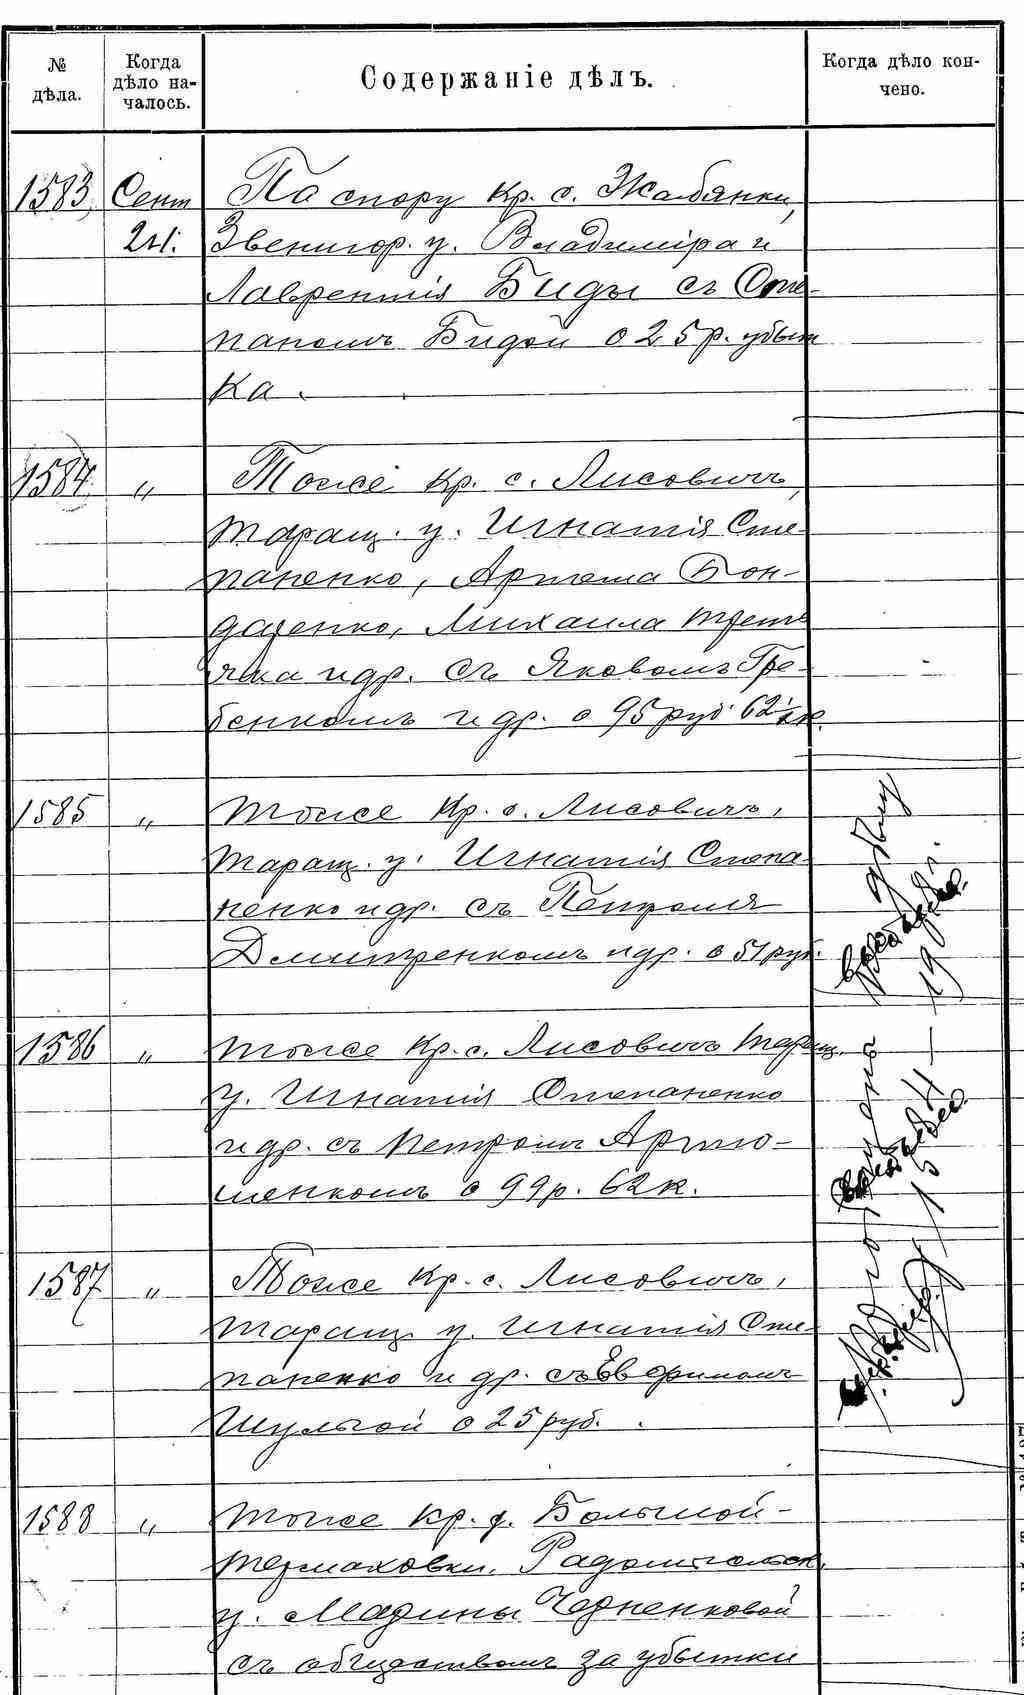 № дѣла.
Когда дѣло началось.
Содержаніе дѣлъ.
Когда дѣло кончено.
1583 Сент 24. По спору кр. с. Жабянки,
Звенигор. у. Владиміра и
Лаврентія Биды съ Сте-
паномъ Бидой о 25 р. убыт
ка.
1584 „ Тоже кр. с. Лисовичъ,
Таращ. у. Игнатія Сте-
паненко, Артема Бон-
даренко, Михаила Треть
яка и др. съ Яковомъ Гре-
бенкомъ и др. о 95 руб. 62½ к.
1585 „ Тоже кр. с. Лисовичъ,
Таращ. у. Игнатія Степа-
ненко и др. съ Петромъ
Дмитренкомъ и др. о 51 руб.
1586 „ Тоже кр. с. Лисовичъ Таращ.
у. Игнатія Степаненко
и др. съ Петромъ Артю-
шенкомъ о 99 р. 62 к.
1587 „ Тоже кр. с. Лисовичъ,
Таращ. у. Игнатія Сте-
паненко и др. съ Евфимомъ
Шульгой о 25 руб.
1588 „ Тоже кр. д. Большой-
Термаховки, Радомысльск.
у. Марины Черненковой
съ обществомъ за убытки